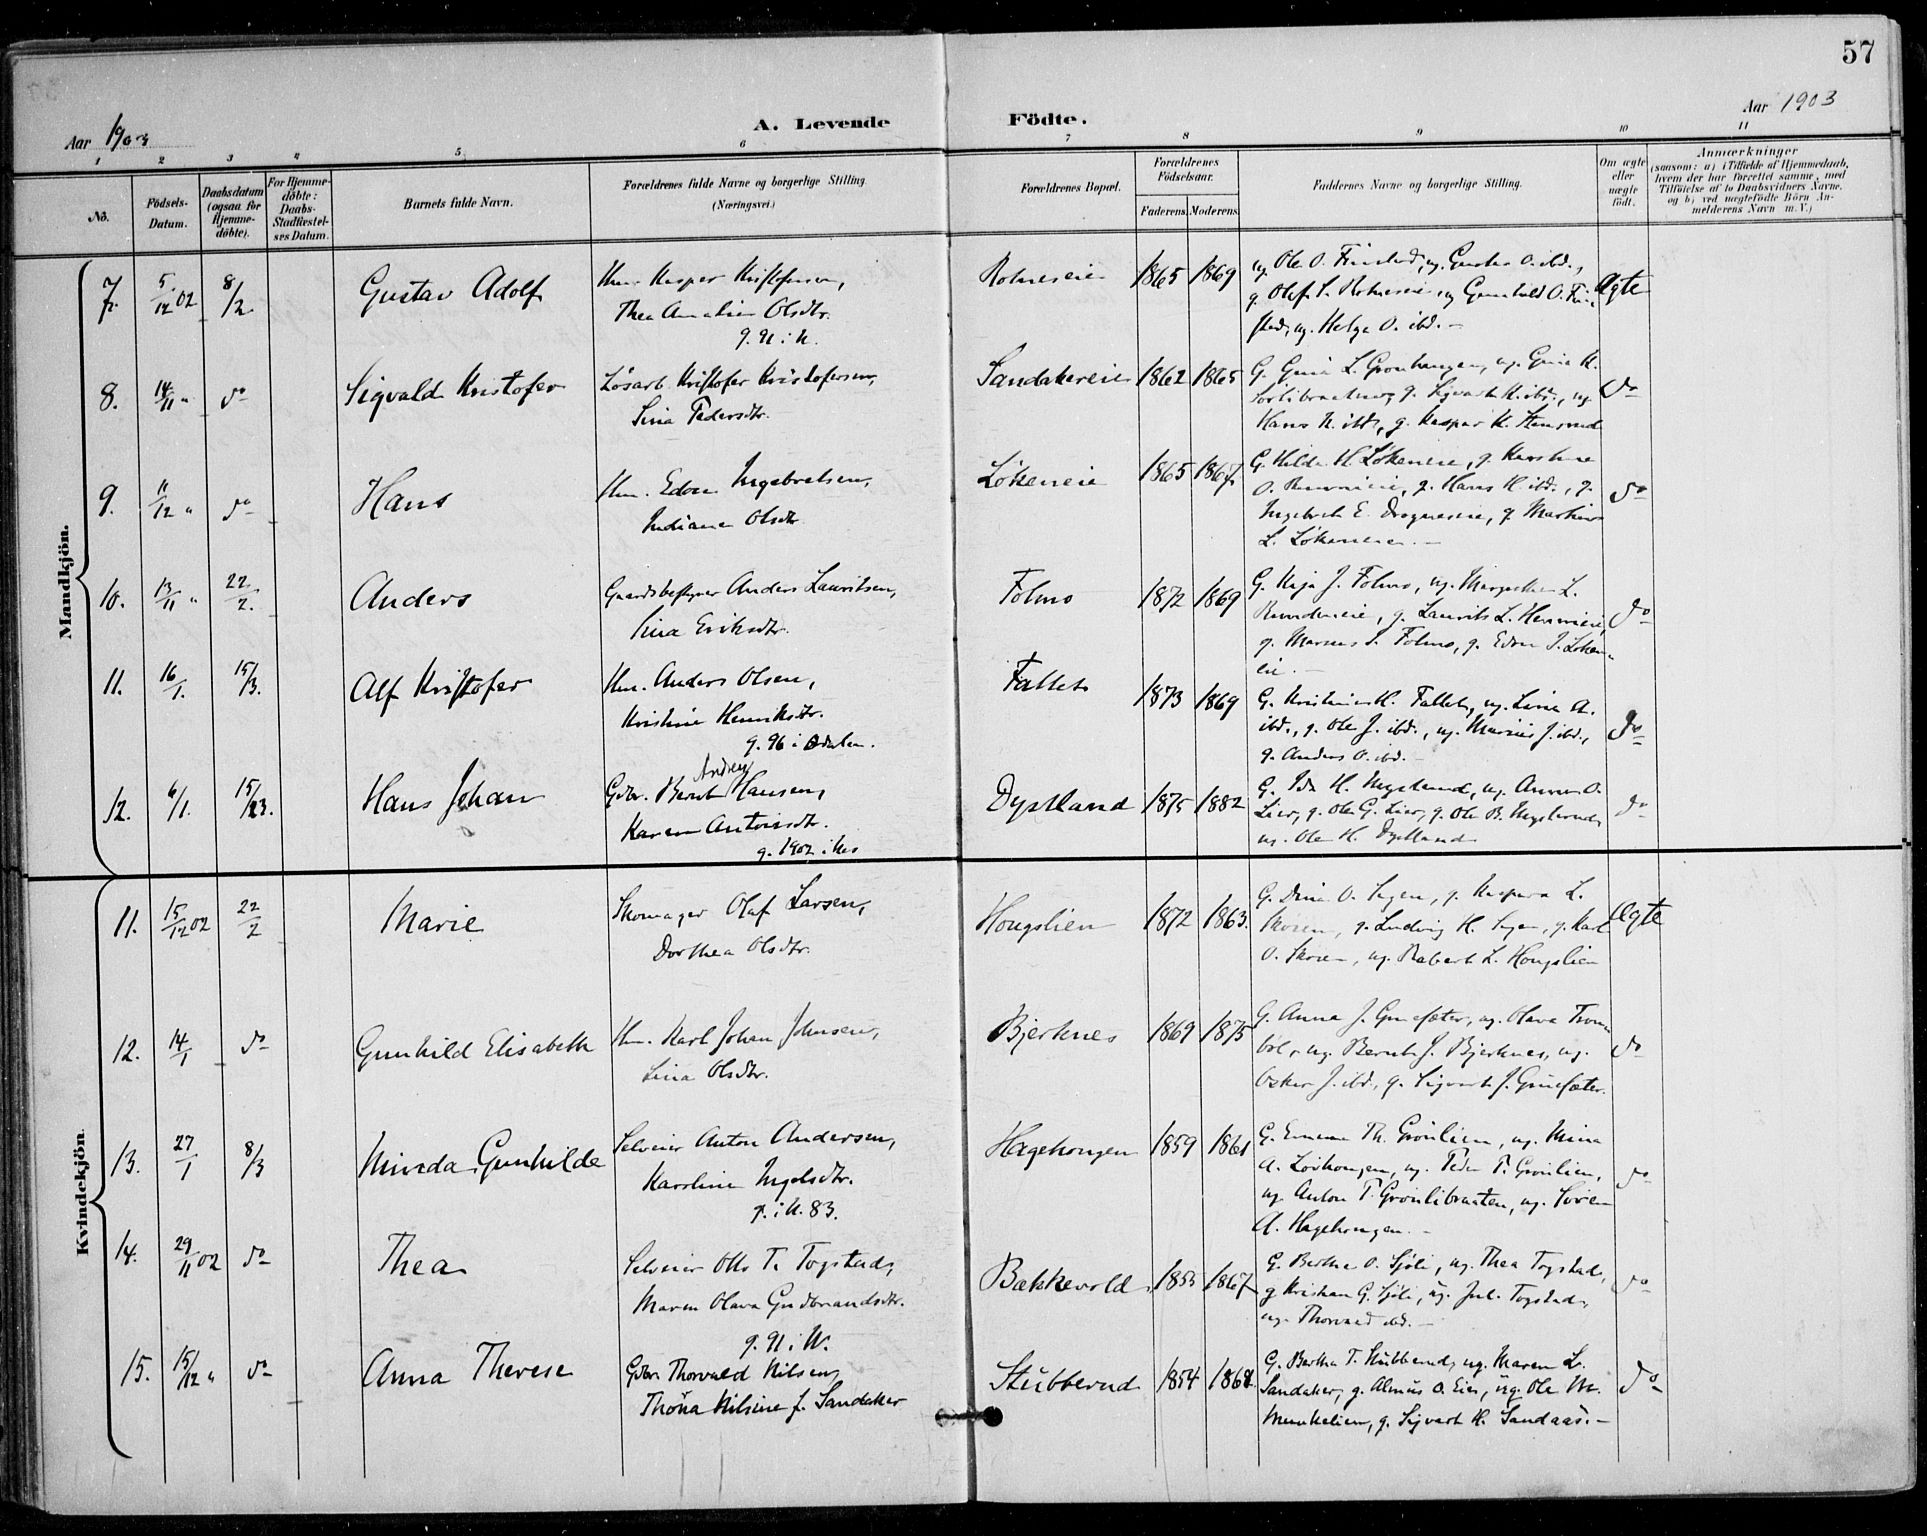 57
Aar 1903
A. Levende Födte.
Aar 1903
1 2 3 4 5 6 7 8 9 10 11
No.
Födsels-Datum.
Daabsdatum (ogsaa for Hjemme-döbte).
For Hjemme-döbte: Daabs-Stadfæstel-ses Datum.
Barnets fulde Navn.
Forældrenes fulde Navne og borgerlige Stilling.
(Næringsvei.)
Forældrenes Bopæl.
Forældrenes Födselsaar.
Faderens. Moderens.
Faddernes Navne og borgerlige Stilling.
Om ægte eller uægte födt.
Anmærkninger
(saasom: a) i Tilfælde af Hjemmedaab,
hvem der har forrettet samme, med
Tilföielse af to Daabsvidners Navne,
og b) ved uægtefödte Börn An-
melderens Navn m. V.)
Mandkjön.
7. 5/12 02 8/2 Gustav Adolf
Hmd. Kasper Kristofersen,
Thea Amalie Olsdtr.
g. 91 i N.
Rotneseie 1865 1869
ug. Ole O. Finstad, ug. Gustav O. ibd.,
g. Olaf S. Rotneseie, ug Gunhild O. Fin-
stad, ug. Helga O. ibd. —
Ægte
8. 14/11 " do Sigvald Kristofer
Lösarb. Kristofer Kristofersen,
Lina Pedersdtr.
Sandakereie 1862 1865
Hans K. ibd., g. Kaspar K. Stensrud
do
9. 11/12 " do Hans
Hmd. Edvin Ingebretsen,
Indiane Olsdtr.
Lökeneie 1865 1867
G. Hilda H. Lökeneie, g. Karoline
g. Hans H. ibd., g.
Ingebret E. Dragneseie, g. Martin
L. Lökeneie. —
do
10. 13/11 " 22/2. Anders
Gaardsbestyrer Anders Lauritsen,
Lina Eriksdtr.
Folmo 1872 1869
G. Kaja J. Folmo, ug. Margrethe L.
g. Laurits L.
g. Marius S. Folmo, g. Edvin I. Löken-
eie. —
do
11. 16/1. 15/3. Alf Kristofer
Hmd. Anders Olsen,
Kristine Henriksdtr.
g. 96 i Odalen.
Fallet 1873 1869
G. Kristine H. Fallet, ug. Lina A.
ibd., g. Ole J. ibd., ug. Marius J. ibd.,
g. Anders O. ibd. —
do
12. 6/1. 15/3. Hans Johan
Gdbr. Bernt Andreas Hansen,
Karen Antonsdtr.
g. 1902 i Nes
Dystland 1875 1882
G. Ida H. Nystuend, ug. Anna O.
Lier, g. Ole G. Lier, g. Ole B.
ug. Ole H. Dystland
do
Kvindekjön.
11. 15/12 02 22/2 Marie
Skomager Olaf Larsen,
Dorthea Olsdtr.
Hougslien 1872 1863.
G. Dina O. Sagen, g. Kaspara L.
g. Ludvig H. Sagen, g. Karl
ug. Robert L. Hougslien
Ægte
12. 14/1 do Gunhild Elisabeth
Hmd. Karl Johan Johnsen,
Lina Olsdtr.
Bjerknes 1869 1875
G. Anna J. Gruesæter, ug. Olava Trom-
böl, ug. Bernt J. Bjerknes, ug.
Oskar J. ibd., g. Sigvart J. Gruesæter.
do
13. 27/1 8/3 Minda Gunhilde
Selveier Anton Andersen,
Karoline Ingelsdtr.
g. i N. 83.
Hagehougen 1859 1861
G. Emma Th. Grönlien, ug. Mina
A. Lövhougen, ug. Peder T. Grönlien,
ug. Anton T. Grönlibraaten, ug. Sören
A. Hagehougen. —
do
14. 29/11 02 do Thea
Selveier Otto T. Togstad,
Maren Olava Gudbrandsdtr.
g. 91 i N.
Bækkevold 1855 1867
G. Berthe O. Sjöli, ug. Thea Togstad,
g Kristian G. Sjöli, ug. Jul. Togstad,
ug. Thorvald ibd. —
do
15. 15/12 " do Anna Therese
Gdbr. Thorvald Nilsen,
Thöra Nilsine f. Sandaker
Stubberud 1854 1864.
G. Bertha T. Stubberud, ug. Maren L.
Sandaker, g. Almus O. Eier, ug. Ole M.
Munkelien, g. Sigvart H. Sandaas. —
do